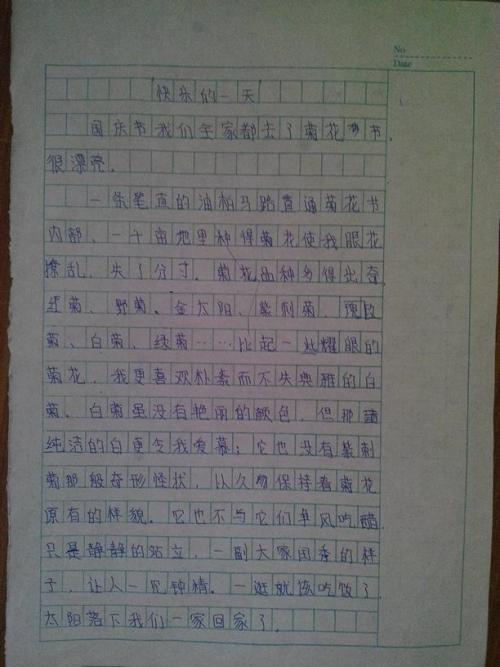 No
Date
快乐的一天
国庆节我们全家都去了菊花节.
很漂亮.
一条笔直的油柏马路直通菊花节
内部、一十亩地里种得菊花使我眼花
撩乱,失了分寸.菊花品种多得出奇
红菊、野菊。金太阳、紫刺菊、
菊、白菊、绿菊……比起一些耀眼的
菊花,我更喜欢朴素而不失典雅的白
菊。白菊虽没有艳丽的颜色,但那
纯洁的白更令我爱慕;它也没有紫刺
菊那般奇形怪状,从久勿保持着菊花
原有的样貌。它也不与它们争风吃醋
只是静静的站立,一副大家闺秀的样
子,让人一见钟情。一逛就该吃饭了
太阳落下我们一家回家了.